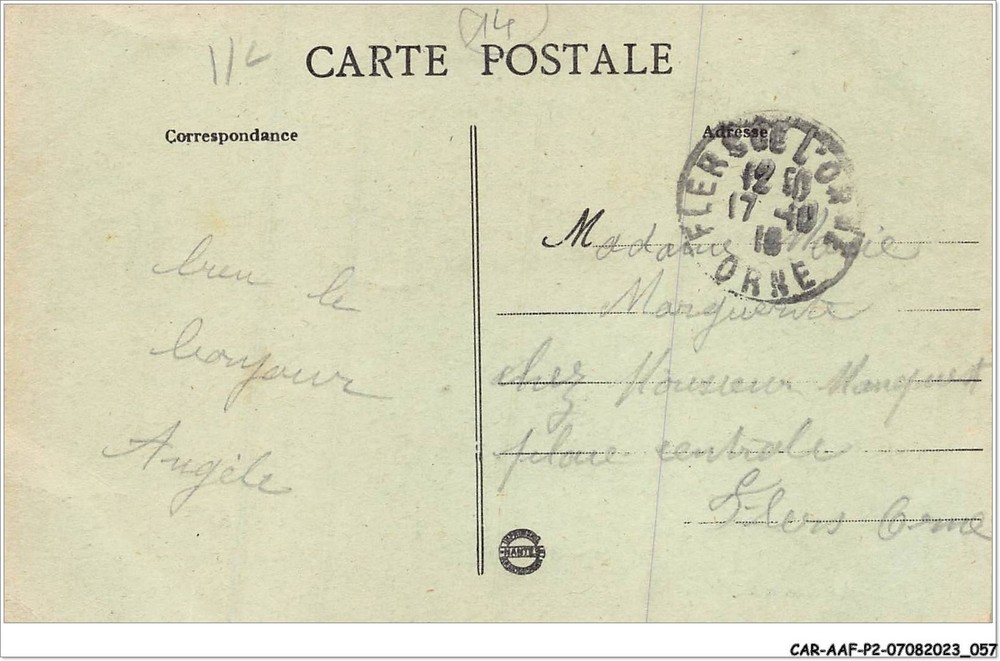 14
CARTE POSTALE
Correspondance
Adresse
FLERS DE L'ORNE
12 50
17 -10
18
ORNE
bien le
bonjour
Angèle
Madame Marie
Marguerite
chez Monsieur
place centrale
Flers Orne
NANTES
CAR-AAF-P2-07082023_057